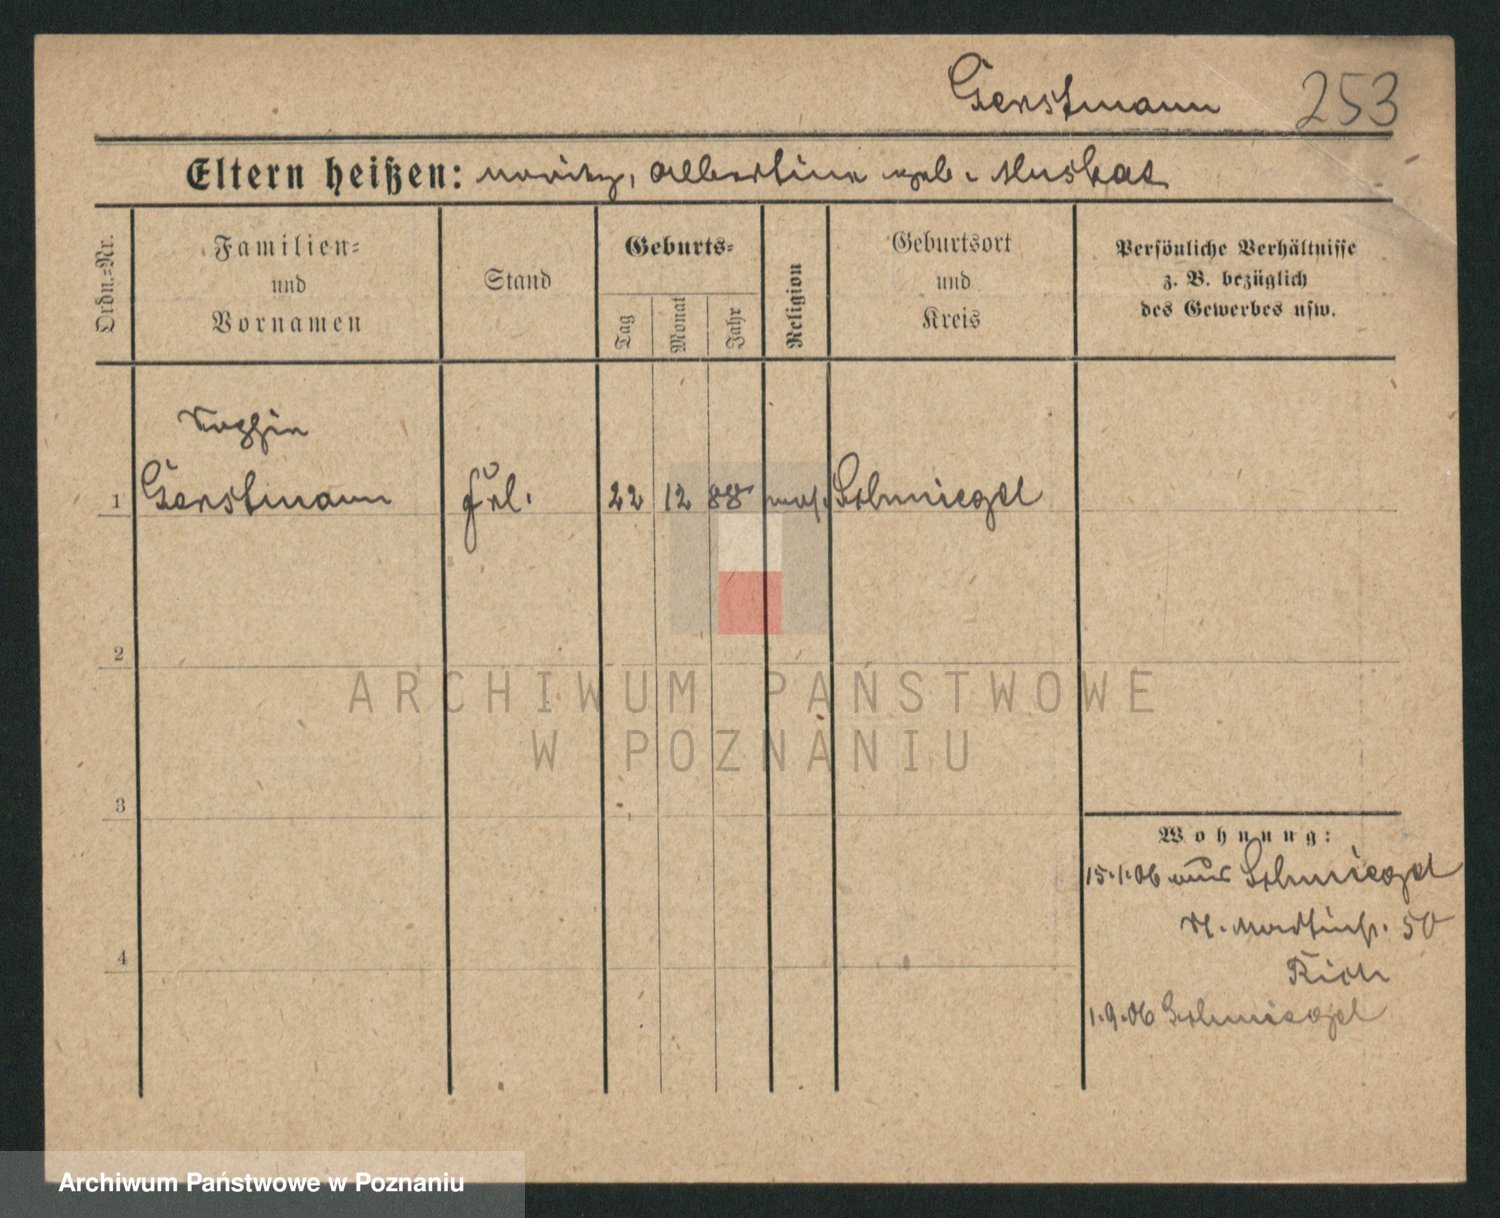 Gerstmann 253
Eltern heißen: Moritz, Albertine geb. Muskat
Ordn.-Nr.
Familien-
und
Vornamen
Stand
Geburts-
Tag
Monat
Jahr
Religion
Geburtsort
und
Kreis
Persönliche Verhältnisse
z. B. bezüglich
des Gewerbes usw.
Sophie
1 Gerstmann Frl. 22 12 88 mos. Schmiegel
2
3
4
Wohnung:
15.1.06 aus Schmiegel
St. Martinstr. 50
1.9.06 Schmiegel
ARCHIWUM PAŃSTWOWE
W POZNANIU
Archiwum Państwowe w Poznaniu